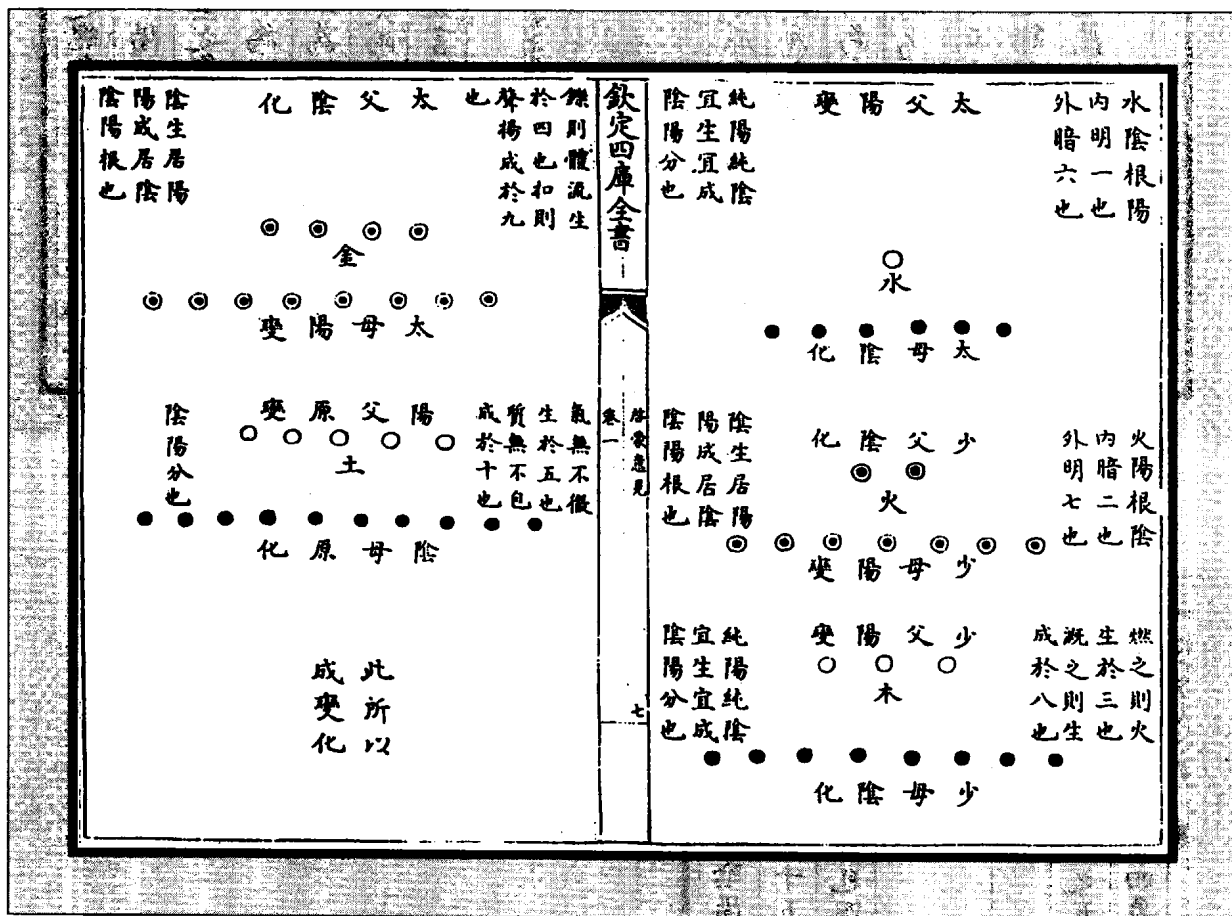 水陰根陽
内明一也
外暗六也
太父陽變
純陽純陰
宜生宜成
陰陽分也
水
太母陰化
火陽根陰
内暗二也
外明七也
少父陰化
陰生居陽
陽成居陰
陰陽根也
火
少母陽變
燃之則火
生於三也
溉之則生
成於八也
少父陽變
純陽純陰
宜生宜成
陰陽分也
木
少母陰化
欽定四庫全書
啓蒙意見
卷一
七
鑠則體流生
於四也扣則
聲揚成於九
也
太父陰化
陰生居陽
陽成居陰
陰陽根也
金
太母陽變
氣無不徹
生於五也
質無不包
成於十也
陽父原變
陰陽分也
土
陰母原化
此所以
成變化